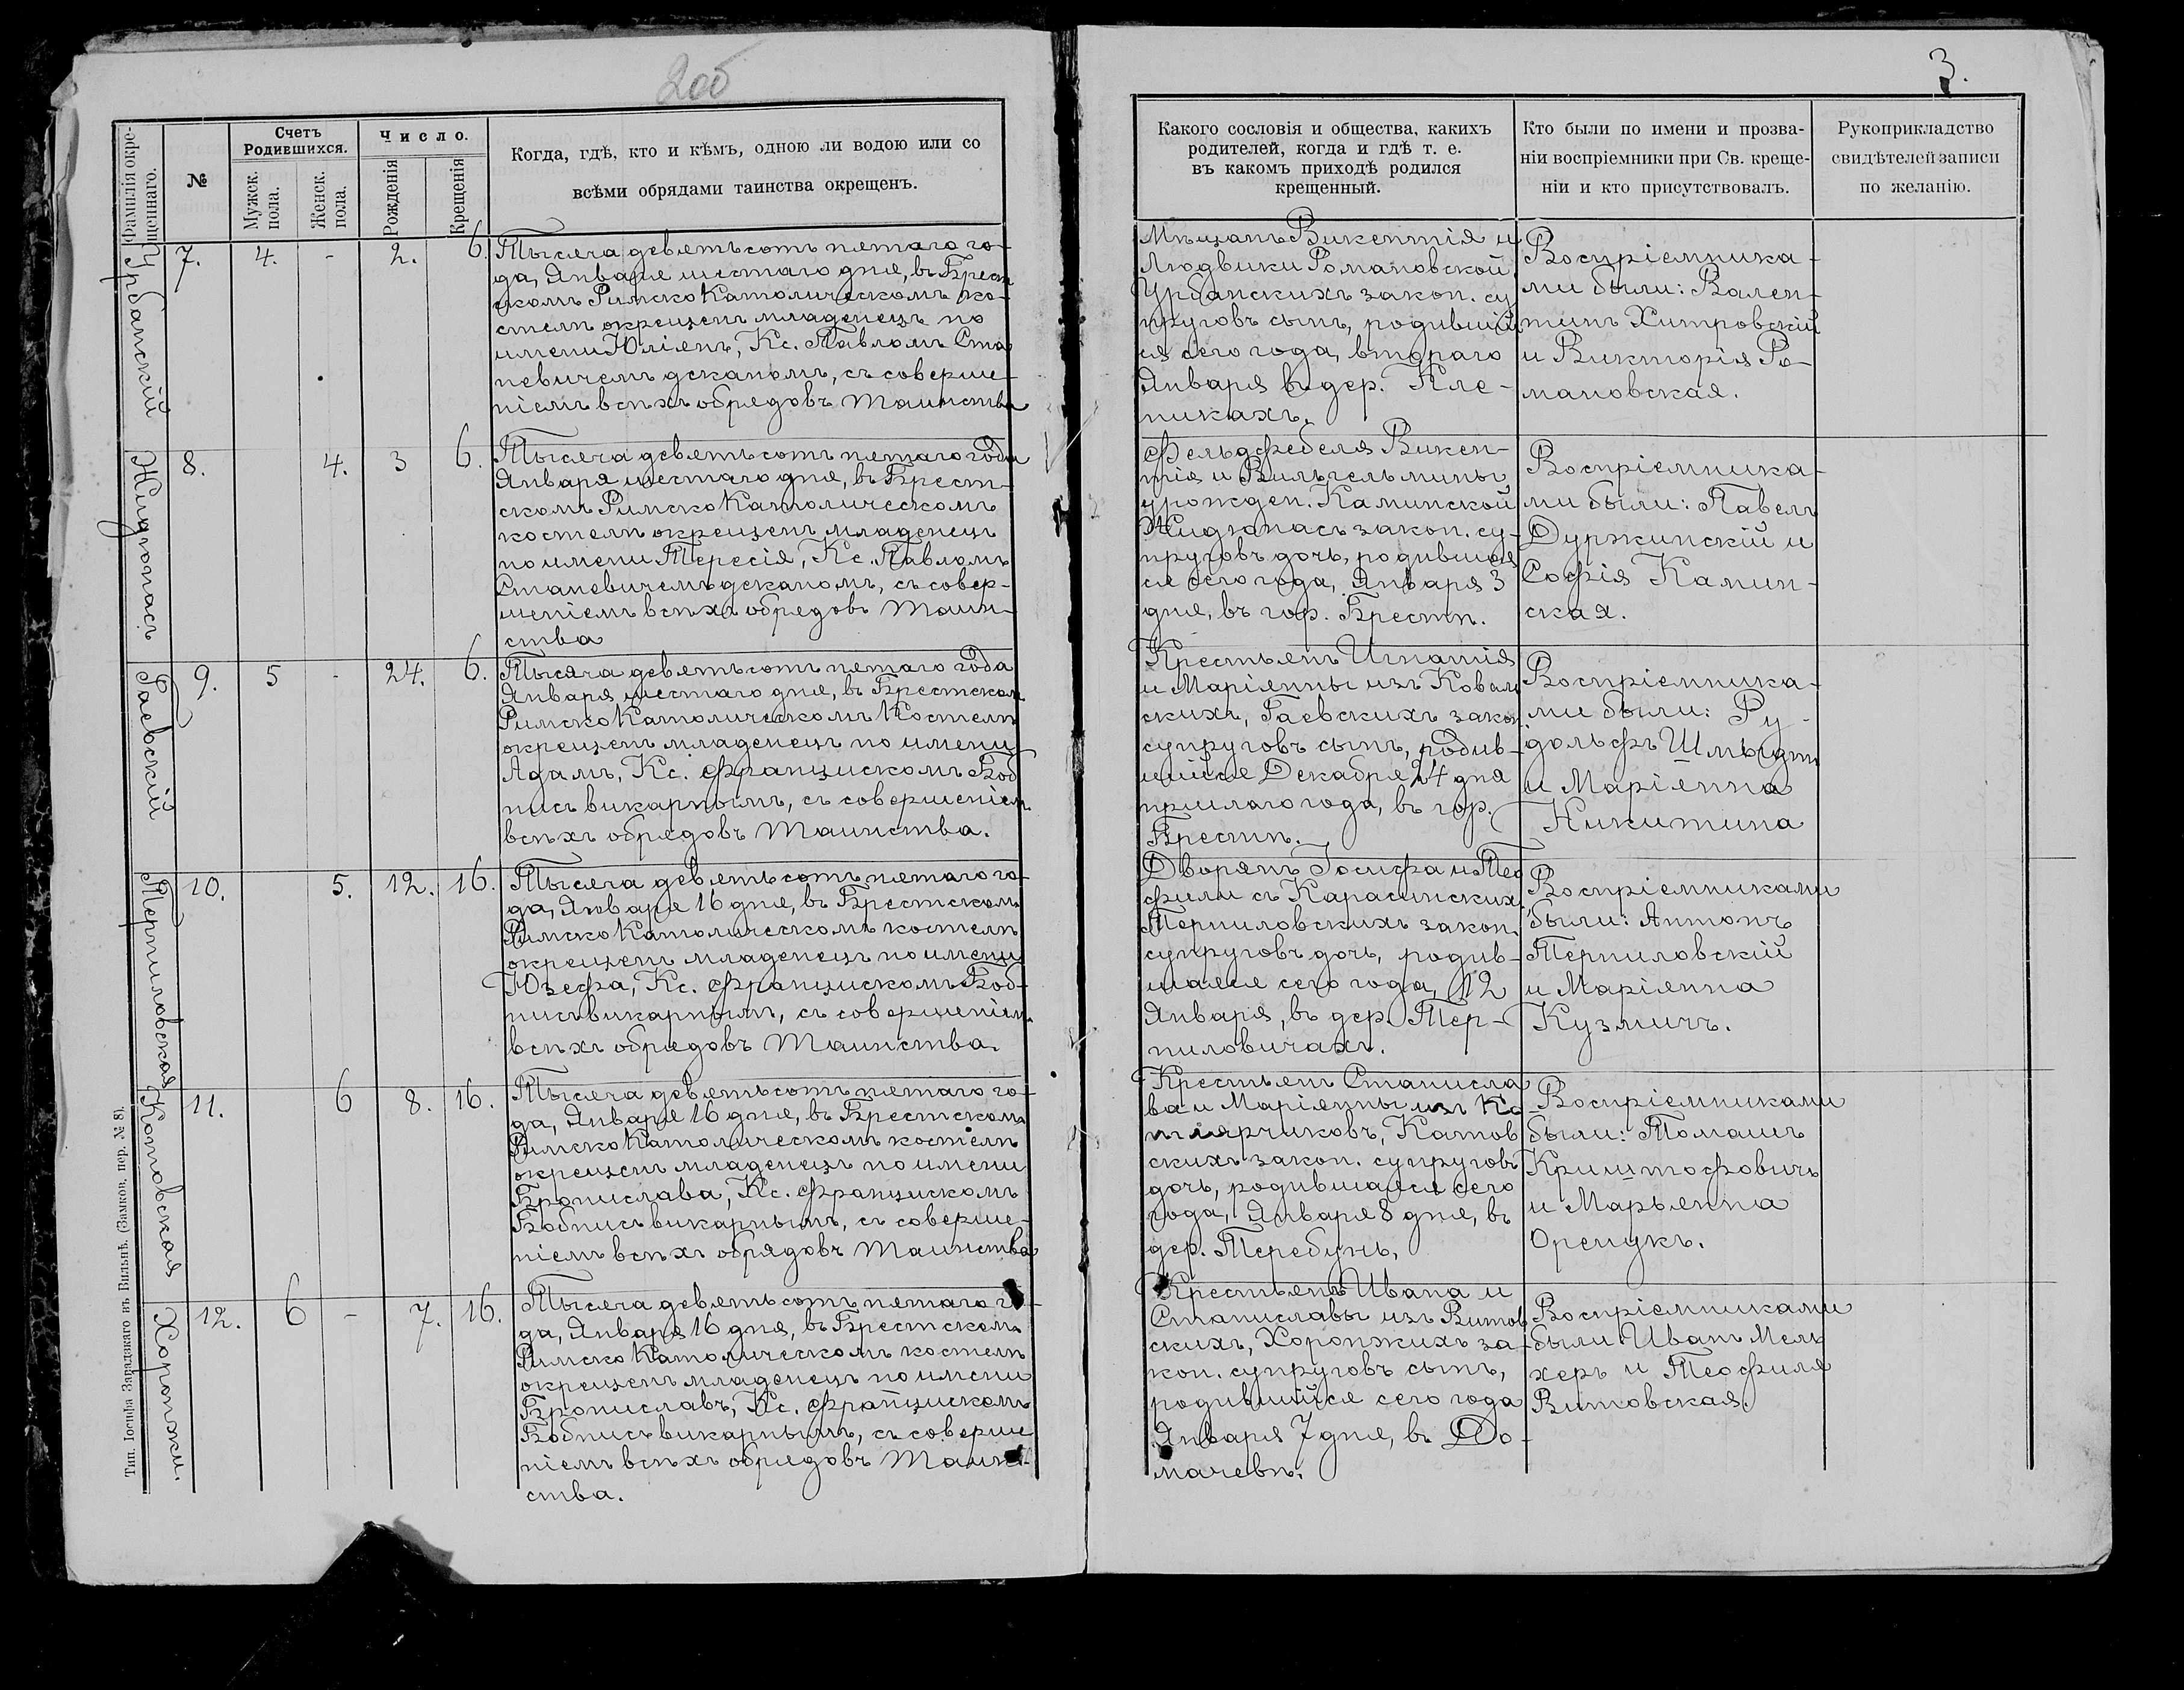 2об
3.
Фамилія окре-
щеннаго.
№
Счетъ
Родившихся.
Мужск.
пола.
Женск.
пола.
Число.
Рожденія
Крещенія
Когда, гдѣ, кто и кѣмъ, одною ли водою или со
всѣми обрядами таинства окрещенъ.
Какого сословія и общества, какихъ
родителей, когда и гдѣ т. е.
въ какомъ приходѣ родился
крещенный.
Кто были по имени и прозва-
ніи воспріемники при Св. креще-
ніи и кто присутствовалъ.
Рукоприкладство
свидѣтелей записи
по желанію.
Урбанскій
7. 4. - 2. 6.
Тысяча девятьсотъ пятаго го-
да, Января шестаго дня, въ Брест
скомъ РимскоКатолическомъ ко-
стелѣ окрещенъ младенецъ по
имени Юліянъ, Кс. Павломъ Ста
невичемъ деканомъ, съ соверше-
ніемъ всѣхъ обрядовъ Таинства
Мѣщанъ Викентія и
Людвики Романовской
Урбанскихъ закон. су
пруговъ сынъ, родившій
ся сего года, втораго
Января въ дер. Кле-
никахъ.
Воспріемника-
ми были: Вален-
тинъ Хитровскій
и Викторія Ро-
мановская.
Жидгонасъ
8. 4. 3 6.
Тысяча девятьсотъ пятаго года
Января шестаго дня, въ Брест-
скомъ РимскоКатолическомъ
костелѣ окрещенъ младенецъ
по имени Тересія, Кс. Павломъ
Станевичемъ деканомъ, съ совер-
шеніемъ всѣхъ обрядовъ Таин-
ства
Фельдфебеля Викен-
тія и Вильгельмины
урожден. Каминской
Жидгонасъ закон. су-
пруговъ дочь, родившая
ся сего года, Января 3
дня, въ гор. Брестѣ.
Воспріемника-
ми были: Павелъ
Дуржинскій и
Софія Камин-
ская.
Гаевскій
9. 5 - 24. 6.
Тысяча девятьсотъ пятаго года
Января шестаго дня, въ Брестском
РимскоКатолическомъ Костелѣ
окрещенъ младенецъ по имени
Адамъ, Кс. Францискомъ Боб
нисъ викарнымъ, съ совершеніем
всѣхъ обрядовъ Таинства.
Крестьянъ Игнатія
и Маріянны изъ Коваль
скихъ, Гаевскихъ закон.
супруговъ сынъ, родив-
шійся Декабря 24 дня
пришлаго года, въ гор.
Брестѣ.
Воспріемника-
ми были: Ру-
дольфъ Шмыдтъ
и Маріянна
Никитина
Терпиловская
10. 5. 12. 16.
Тысяча девятьсотъ пятаго го-
да, Января 16 дня, въ Брестскомъ
РимскоКатолическомъ костелѣ
окрещенъ младенецъ по имени
Юзефа, Кс. Францискомъ Боб-
нисъ викарнымъ, съ совершеніем
всѣхъ обрядовъ Таинства.
Дворянъ Іосифа и Тео
фили съ Карасинскихъ
Терпиловскихъ закон.
супруговъ дочь, родив-
шаяся сего года, 12
Января, въ дер. Тер-
пиловичахъ.
Воспріемниками
были: Антонъ
Терпиловскій
и Маріянна
Кузмичъ.
Котовская
11. 6 8. 16.
Тысяча девятьсотъ пятаго го-
да, Января 16 дня, въ Брестскомъ
РимскоКатолическомъ костелѣ
окрещенъ младенецъ по имени
Бронислава, Кс. Францискомъ
Бобнисъ викарнымъ, съ соверше-
ніемъ всѣхъ обрядовъ Таинства
Крестьянъ Станисла
ва и Маріянны изъ Ко
тлярчиковъ, Катов
скихъ закон. супруговъ
дочь, родившаяся сего
года, Января 8 дня, въ
дер. Теребунь.
Воспріемниками
были: Томашъ
Криштофовичъ
и Марьянна
Оремукъ.
Хоронжи.
12. 6 - 7. 16.
Тысяча девятьсотъ пятаго го-
да, Января 16 дня, въ Брестскомъ
РимскоКатолическомъ костелѣ
окрещенъ младенецъ по имени
Брониславъ, Кс. Францискомъ
Бобнисъ викарнымъ, съ соверше
ніемъ всѣхъ обрядовъ Таин-
ства.
Крестьянъ Ивана и
Станиславы изъ Витов
скихъ, Хоронжихъ за-
кон. супруговъ сынъ,
родившійся сего года
Января 7 дня, въ До-
мачевѣ.
Воспріемниками
были Иванъ Мель
херъ и Теофиля
Витовская.
Тип. Іосифа Завадзкаго въ Вильнѣ. (Замков. пер. № 8).